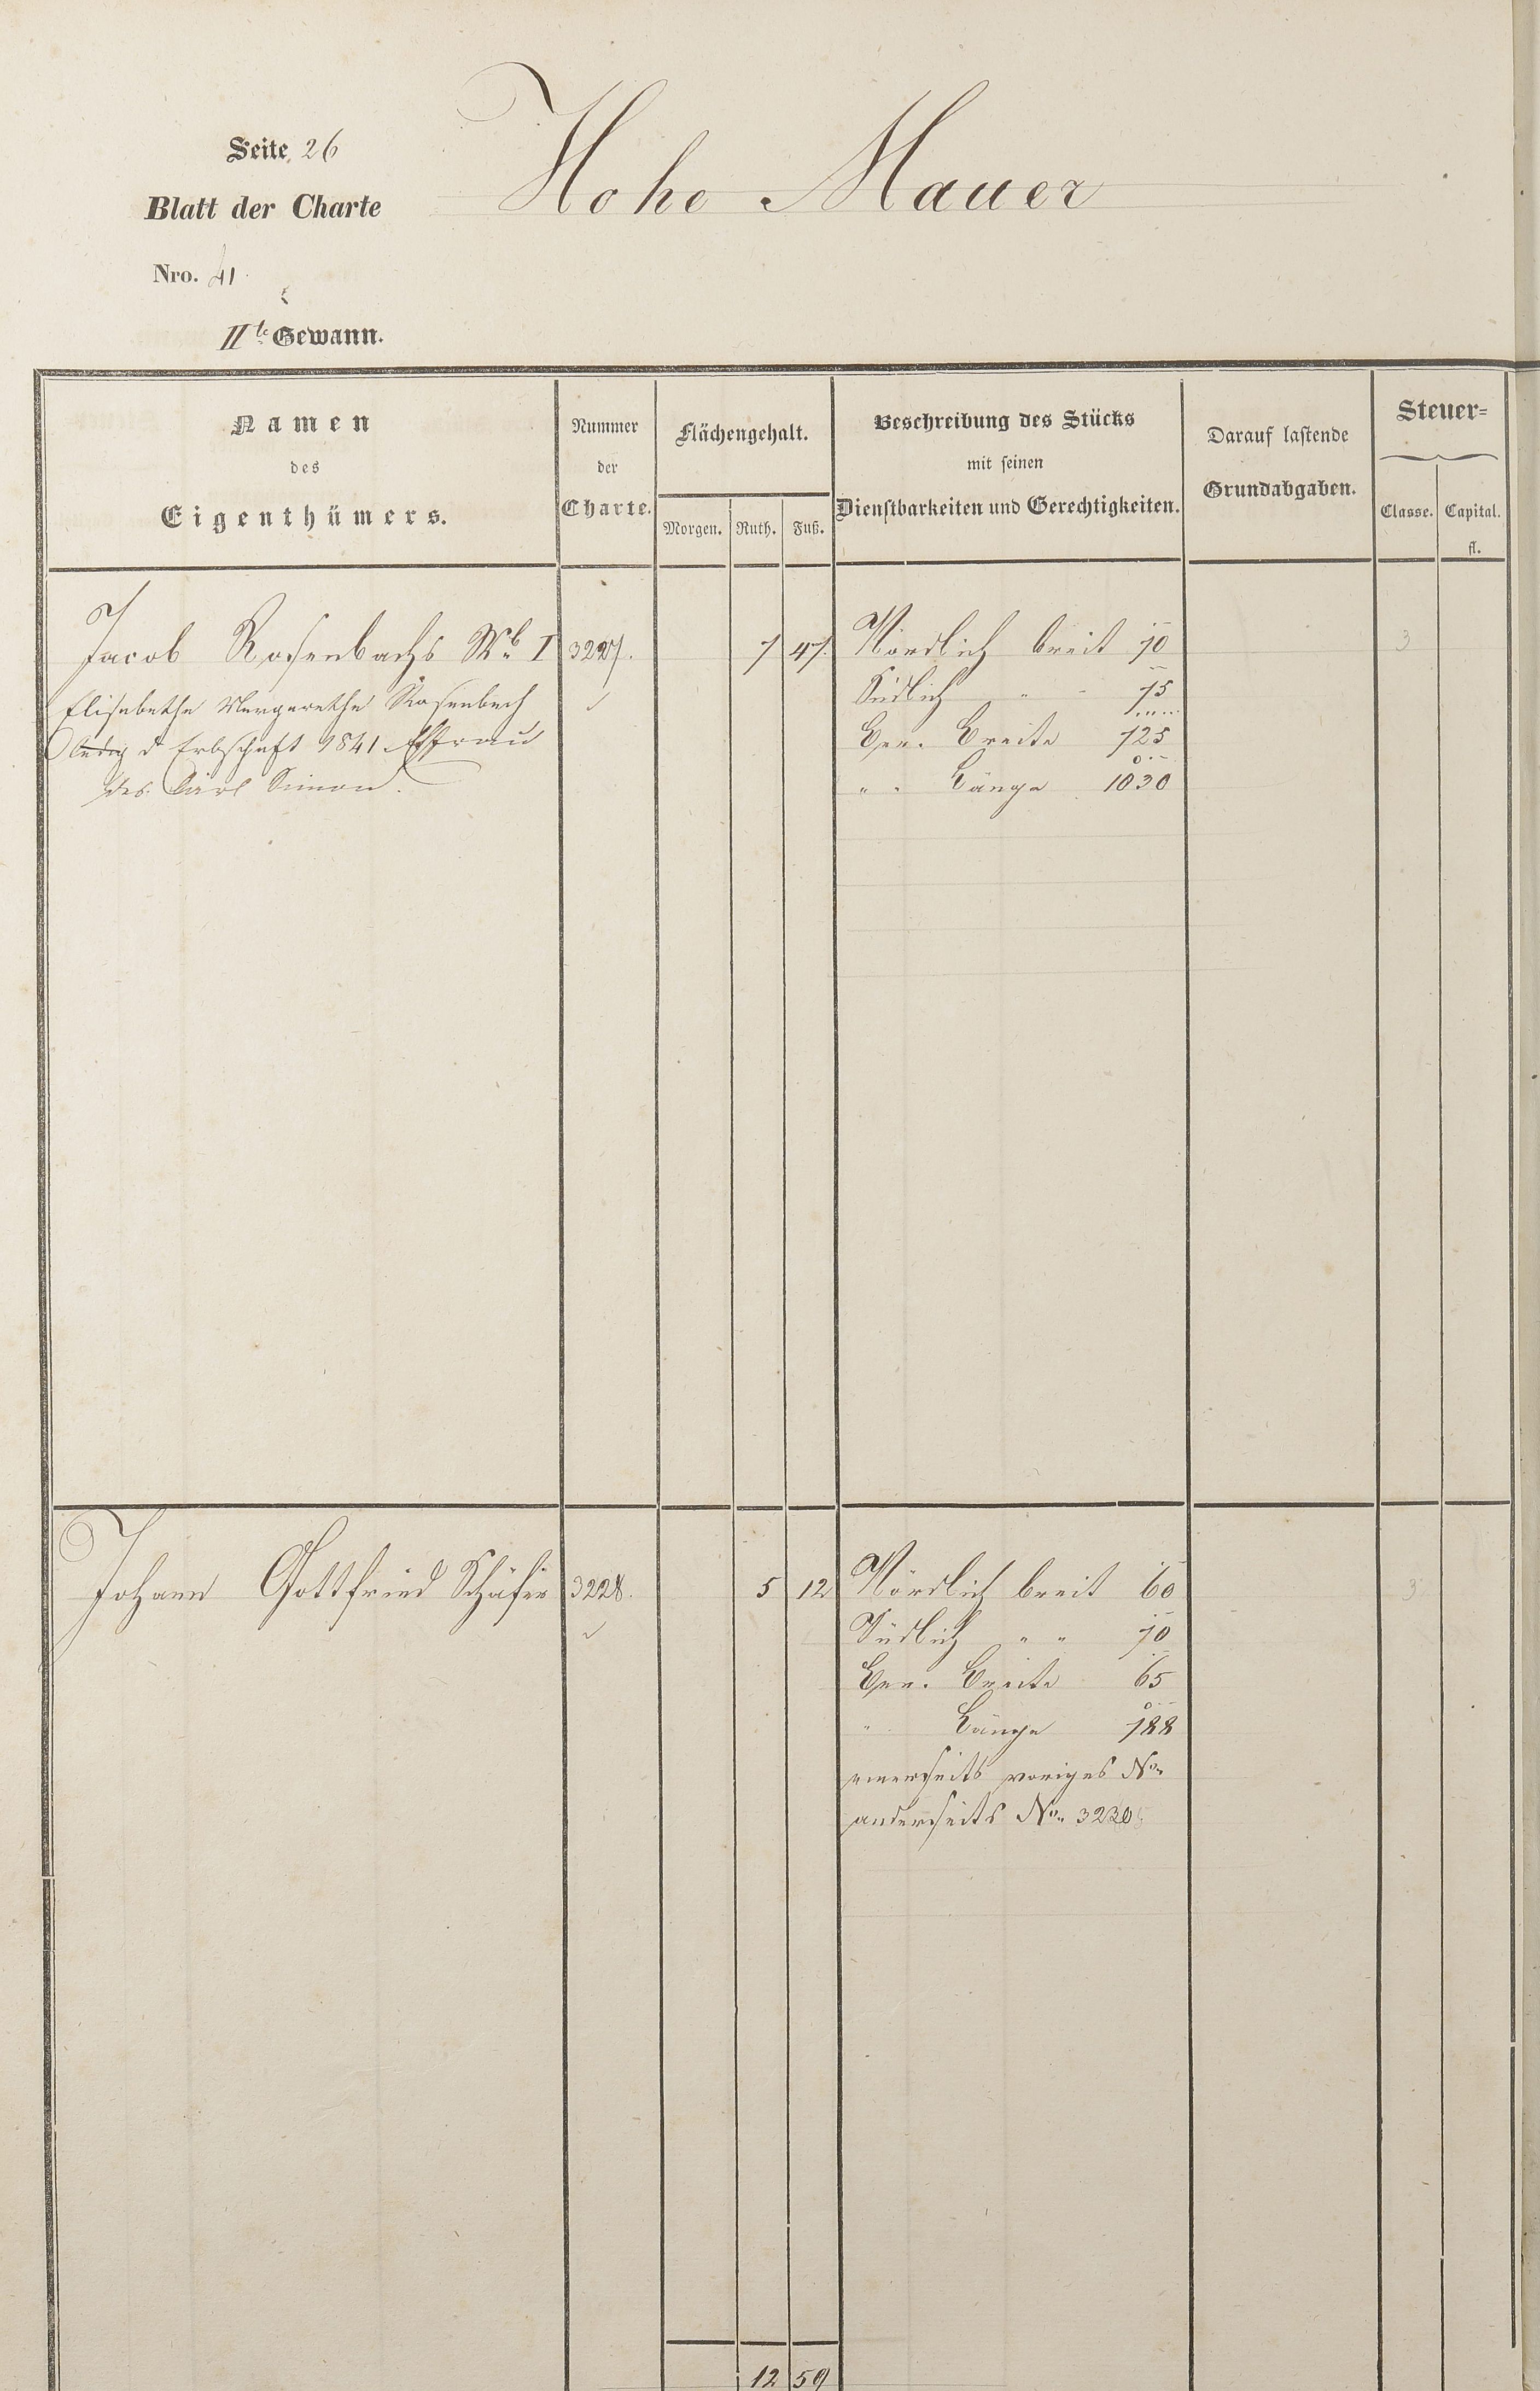 Seite 26
Hohe Mauer
Blatt der Charte
Nro. 41
II te Gewann.
Namen
des
Eigenthümers.
Nummer
der
Charte.
Flächengehalt.
Morgen. Ruth. Fuß.
Beschreibung des Stücks
mit seinen
Dienstbarkeiten und Gerechtigkeiten.
Darauf lastende
Grundabgaben.
Steuer=
Classe. Capital.
fl.
Jacob Rosenbachs Wb. I 3227. 7 47. Nördlich breit 70 3
Elisabetha Margaretha Rosenbach Südlich " - 75
d Erbschaft 1841 Ehfrau Gen. Breite 725
des Carl Simon. " " Länge 1030
Johann Gottfried Schäfer 3228. 5 12 Nördlich breit 60 3
Südlich " " 70
Gen. Breite 65
" Länge 788
einerseits voriges No.
anderseits No. 3230
12 59